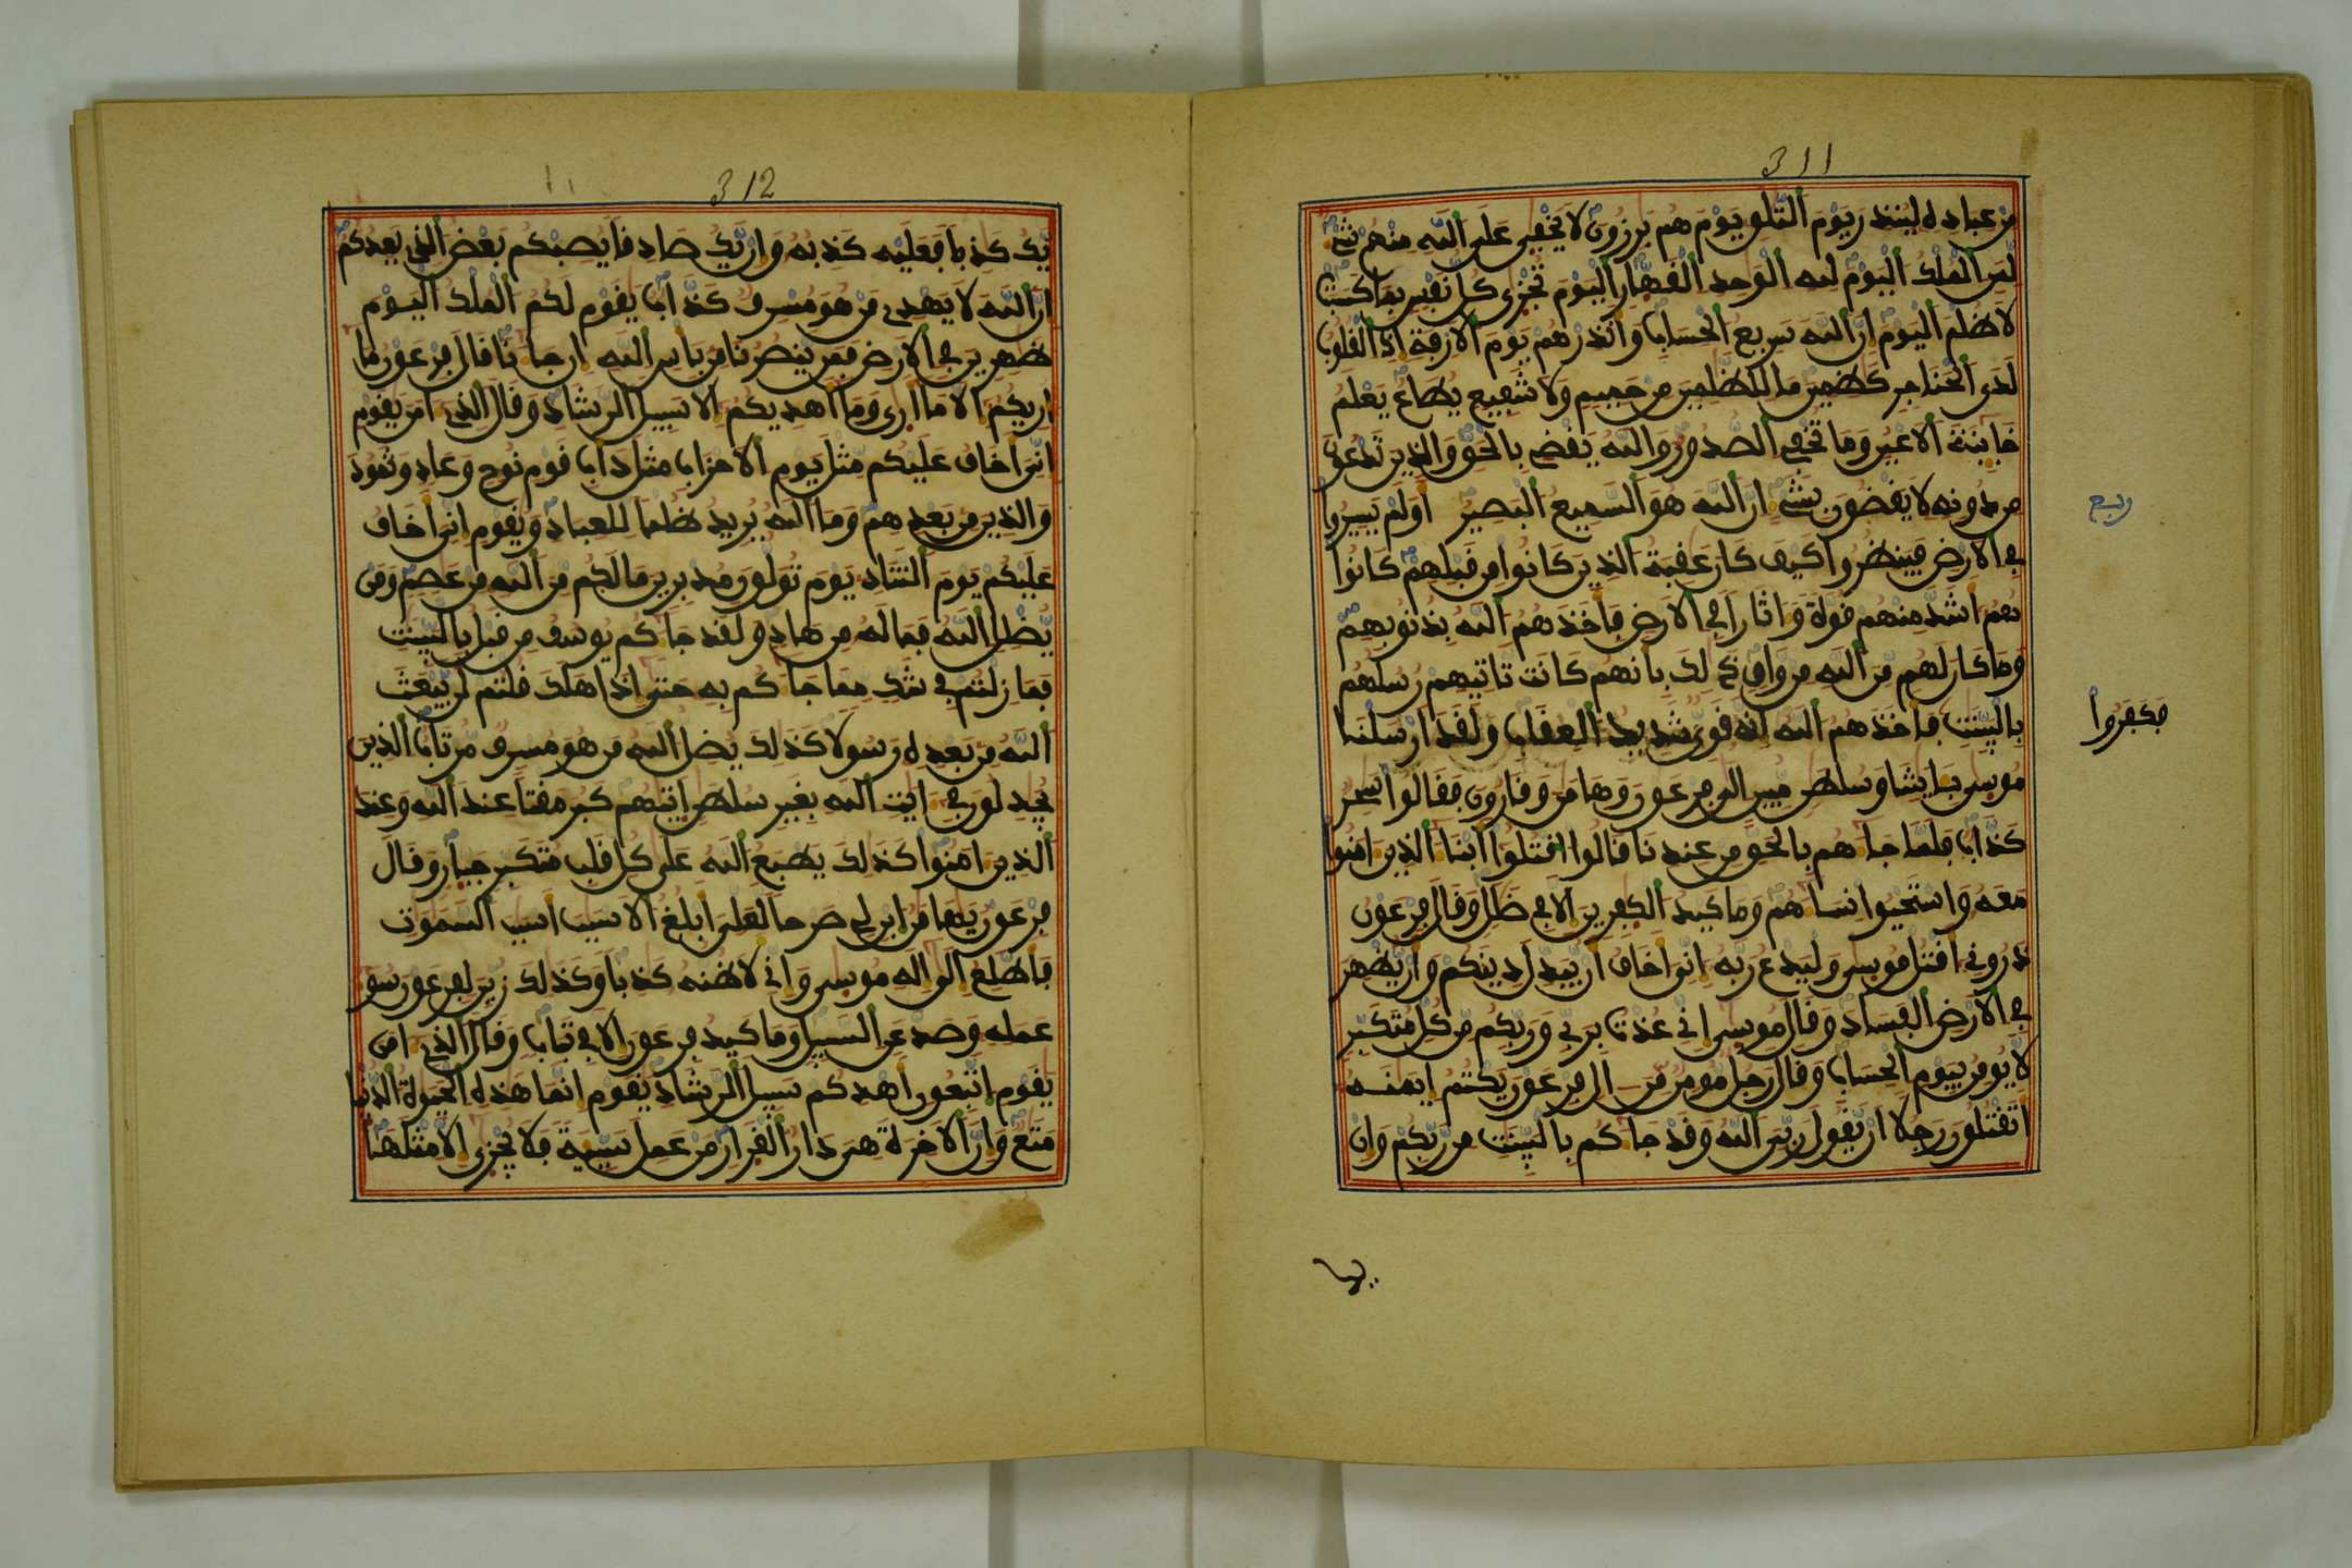 311
من عباده لينذر يوم التلو يوم هم برزون لا يخفى على الله منهم شے
لمن الملك اليوم لله الوحد القهار اليوم تجزى كل نفس بما كسبت
لا ظلم اليوم ان الله سريع الحساب وانذرهم يوم الازفة اذ القلوب
لدى الحناجر كظمين ما للظلمين من حميم ولا شفيع يطاع يعلم
خاينة الاعين وما تخفى الصدور والله يقضى بالحق والذين تدعون
من دونه لا يقضون بشے ان الله هو السميع البصير اولم يسيروا
ربع
في الارض فينظروا كيف كان عقبة الذين كانوا من قبلهم كانوا
هم اشد منهم قوة وءاثارا في الارض فاخذهم الله بذنوبهم
وما كان لهم من الله من واق ذلك بانهم كانت تاتيهم رسلهم
بالبينت فاخذهم الله انه قوى شديد العقاب ولقد ارسلنا
فكفروا
موسى بـايتنا وسلطن مبين الى فرعون وهامن وقارون فقالوا سحر
كذاب فلما جاهم بالحق من عندنا قالوا اقتلوا ابنا الذين امنوا
معه واستحيوا نساهم وما كيد الكفرين الا في ضلل وقال فرعون
ذروني اقتل موسى وليدع ربه اني اخاف ان يبدل دينكم وان يظهر
في الارض الفساد وقال موسى اني عذت بربي وربكم من كل متكبر
لا يومن بيوم الحساب وقال رجل مومن من ال فرعون يكتم ايمنـه
اتقتلون رجلا ان يقول ربي الله وقد جاكم بالبينت من ربكم وان
يك
312
يك كذبا فعليه كذبه وان يك صادقا يصبكم بعض الذي يعدكم
ان الله لا يهدي من هو مسرف كذاب يقوم لكم الملك اليوم
ظهرين في الارض فمن ينصرنا من باس الله ان جانا قال فرعون ما
اريكم الا ما ارى وما اهديكم الا سبيل الرشاد وقال الذي امن يقوم
اني اخاف عليكم مثل يوم الاحزاب مثل داب قوم نوح وعاد وثمود
والذين من بعدهم وما الله يريد ظلما للعباد ويقوم اني اخاف
عليكم يوم التناد يوم تولون مدبرين ما لكم من الله من عصم ومن
يضلل الله فما له من هاد ولقد جاكم يوسف من قبل بالبينت
فما زلتم في شك مما جاكم به حتى اذا هلك قلتم لن يبعث
الله من بعده رسولا كذلك يضل الله من هو مسرف مرتاب الذين
يجدلون في ايت الله بغير سلطن اتيهم كبر مقتا عند الله وعند
الذين امنوا كذلك يطبع الله على كل قلب متكبر جبار وقال
فرعون يهامن ابن لي صرحا لعلى ابلغ الاسبب اسبب السموت
فاطلع الى اله موسى واني لاظنه كذبا وكذلك زين لفرعون سو
عمله وصد عن السبيل وما كيد فرعون الا في تباب وقال الذي امن
يقوم اتبعون اهدكم سبيل الرشاد يقوم انما هذه الحيوة الدنيا
متع وان الاخرة هي دار القرار من عمل سيية فلا يجزى الا مثلها